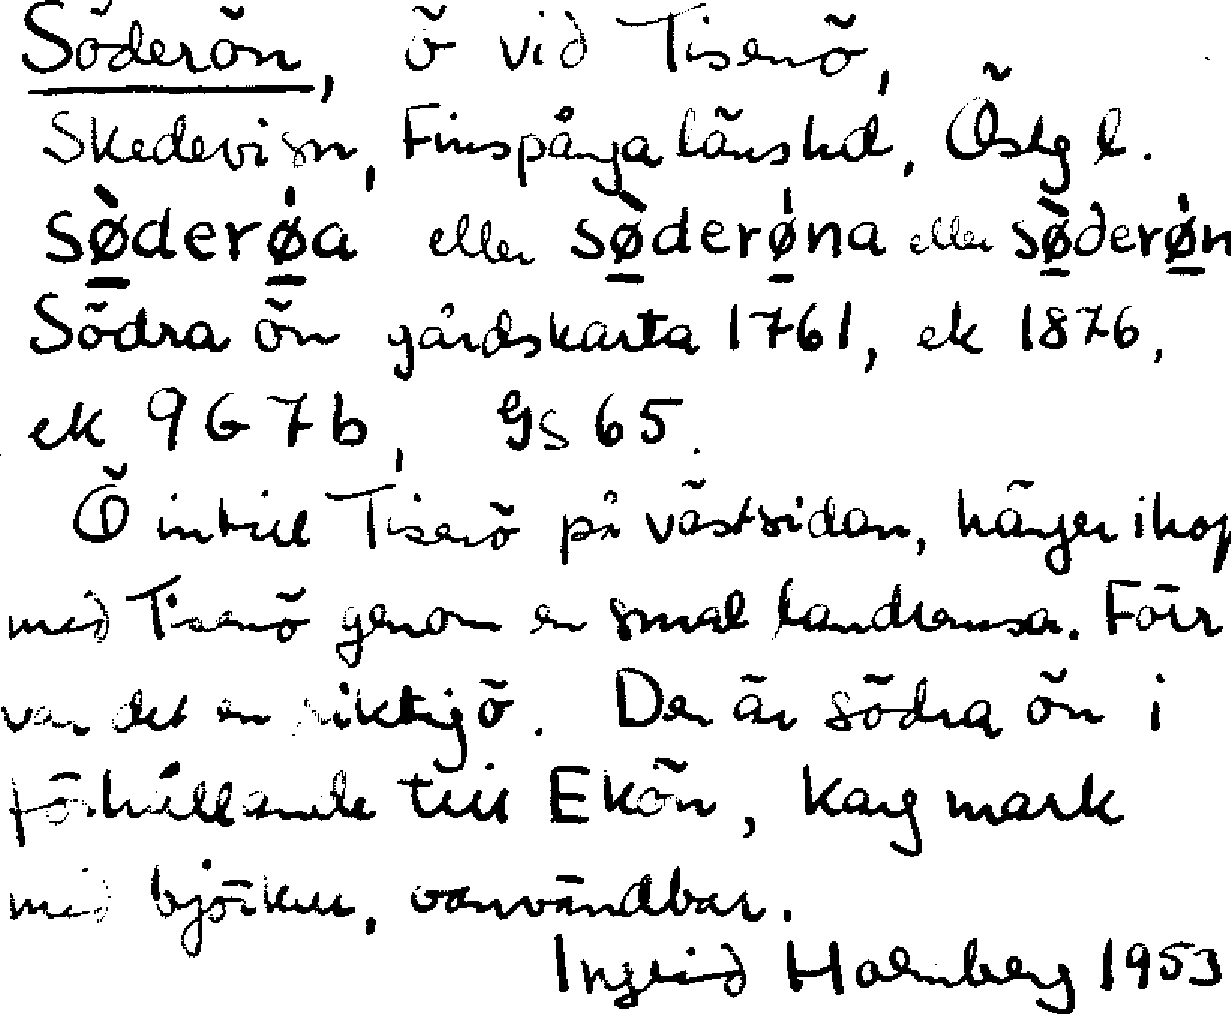 Söderön, ö vid Tisenö,
Skedevi sn, Finspånga länshd, Östg l.
sø̀derǿa eller sø̀derǿna eller sø̀derǿn
Södra ön gårdskarta 1761, ek 1876,
ek 9G7b, GS 65.
Ö intill Tisenö på västsidan, hänger ihop
med Tisenö genom en smal landremsa. Förr
var det en riktig ö. Den är södra ön i
förhållande till Ekön, Karg mark
med björkar, oanvändbar.
Ingrid Holmberg 1953